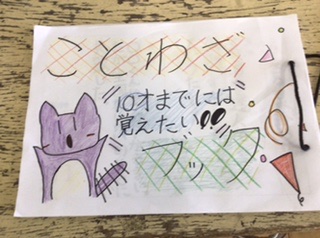 ことわざ
10才までには
覚えたい!!
ブック